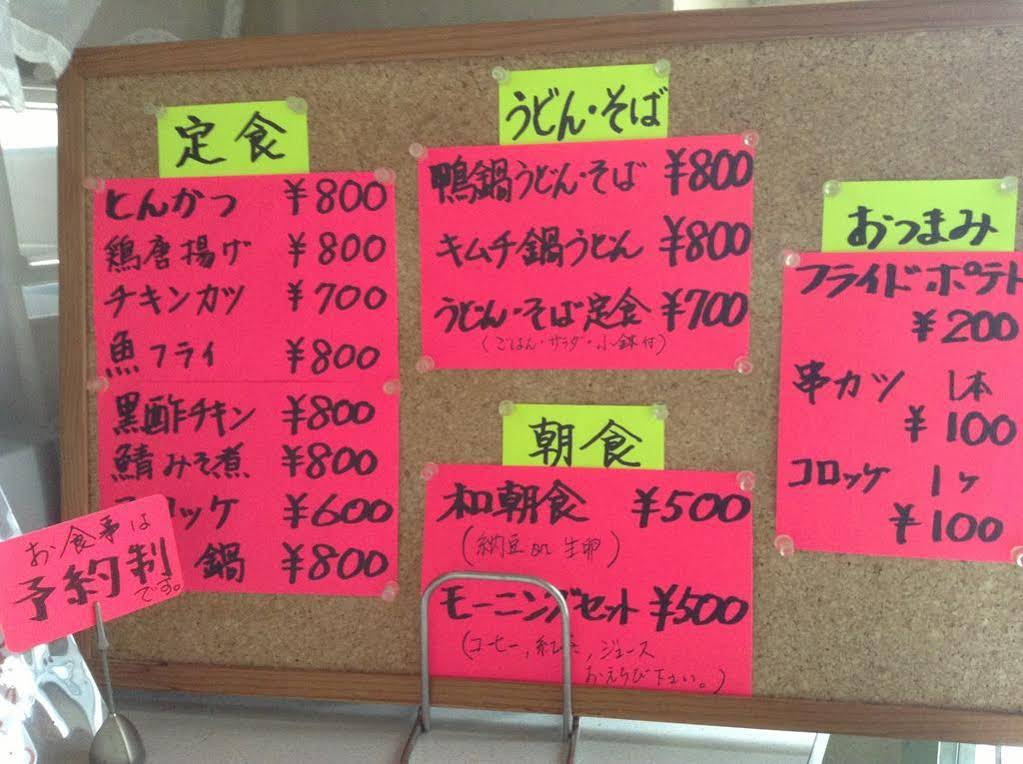 定食
とんかつ ¥800
鶏唐揚げ ¥800
チキンカツ ¥700
魚フライ ¥800
黒酢チキン ¥800
鯖みそ煮 ¥800
ロッケ ¥600
鍋 ¥800
お食事は
予約制
です。
うどん・そば
鴨鍋うどん・そば ¥800
キムチ鍋うどん ¥800
うどん・そば定食 ¥700
(ごはん・サラダ・小鉢付)
朝食
和朝食 ¥500
(納豆 or 生卵)
モーニングセット ¥500
(コーヒー, 紅茶, ジュース
おえらび下さい。)
おつまみ
フライドポテト
¥200
串カツ 1本
¥100
コロッケ 1ヶ
¥100